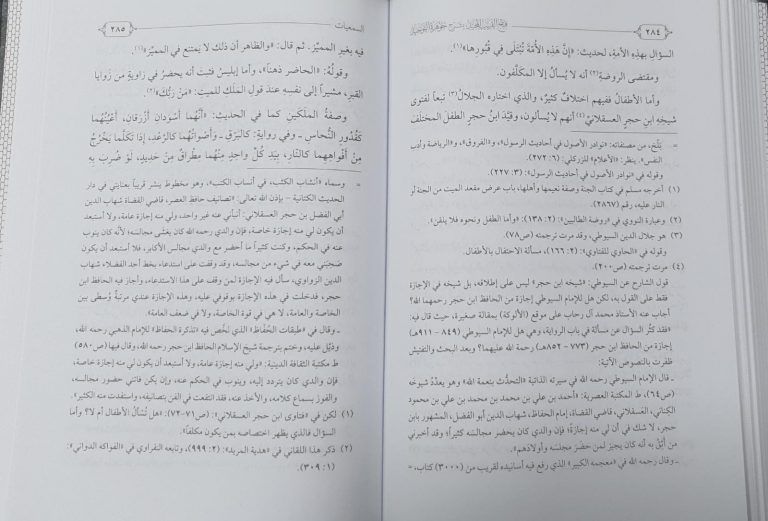 ٢٨٤
فتح القريب المجيد بشرح جوهرة التوحيد
السؤال بهذِهِ الأمةِ، لحديث: «إنَّ هَذِهِ الأُمَّةَ تُبْتَلَى فِي قُبُورِها»(١).
ومقتضى الروضةِ(٢) أنه لا يُسألُ إلا المكلَّفون.
وأما الأطفالُ ففيهم اختلافٌ كثيرٌ، والذي اختاره الجلالُ(٣) تبعاً لفتوى
شيخِهِ ابنِ حجرٍ العسقلانيِّ(٤) أنهم لا يُسألون، وقيَّدَ ابنُ حجرٍ الطفلَ المختلفَ
= بَلْخ، من مصنفاته: «نوادر الأصول في أحاديث الرسول»، و«الفروق»، و«الرياضة وأدب
النفس». ينظر: «الأعلام» للزركلي (٦: ٢٧٢).
وقوله في «نوادر الأصول في أحاديث الرسول» (٣: ٢٢٧).
(١) أخرجه مسلم في كتاب الجنة وصفة نعيمها وأهلها، باب عرض مقعد الميت من الجنة أو
النار عليه، رقم (٢٨٦٧).
(٢) وعبارة النووي في «روضة الطالبين» (٢: ١٣٨): «وأما الطفل ونحوه فلا يلقن».
(٣) هو جلال الدين السيوطي، وقد مرت ترجمته (ص٧٨).
وقوله في «الحاوي للفتاوي» (٢: ١٦٦)، مسألة الاحتفال بالأطفال.
(٤) مرت ترجمته (ص٢٠٠).
قول الشارح عن السيوطي: «شيخه ابن حجر» ليس على إطلاقه، بل شيخه في الإجازة
فقط على القول به، لكن هل للإمام السيوطي إجازة من الحافظ ابن حجر رحمهما الله؟
أجاب عنه الأستاذ محمد آل رحاب على موقع (الألوكة) بمقالة صغيرة، حيث قال فيه:
«فقد كثُر السؤال عن مسألة في باب الرواية، وهي هل للإمام السيوطي (٨٤٩ - ٩١١هـ)
إجازة من الحافظ ابن حجر (٧٧٣ - ٨٥٢هـ) رحمة الله عليهما؟ وبعد البحث والتفتيش
ظفرت بالنصوص الآتية:
ـ قال الإمام السيوطي رحمه الله في سيرته الذاتية «التحدُّث بنعمة الله» وهو يعدِّدُ شيوخه
(ص٦٤)، ط المكتبة العصرية: «أحمد بن علي بن محمد بن محمد بن علي بن محمود
الكِناني، العَسقلاني، قاضي القضاة، إمام الحفاظ، شهاب الدين أبو الفضل، المشهور بابن
حجر، لا شك في أن لي منه إجازةً؛ فإن والدي كان يحضر مجالسَه كثيراً؛ وقد أخبرني
من أَثِقُ به أنه كان يجيز لمن حضرَ مجلسَه وأولادهم».
ـ وقال رحمه الله في «معجمه الكبير» الذي رفع فيه أسانيده لقريب من (٣٠٠٠) كتاب، =
السمعيات
٢٨٥
فيه بغيرِ المميَّز. ثم قال: «والظاهر أن ذلك لا يمتنع في المميِّز»(١).
وقولُهُ: «الحاضر ذهناً»، وأما إبليسُ فثبت أنه يحضرُ في زاويةٍ من زَوايا
القبرِ، مشيراً إلى نفسِهِ عندَ قولِ الملَكِ للميت: «مَنْ رَبُّكَ»(٢).
وصفةُ الملَكَين كما في الحديث: «أنَّهُما أسْودَان أزْرقان، أعْيُنُهُما
كقُدُورِ النُّحاس ـ وفي روايةٍ: كالبَرْق ـ وأصْواتُهما كالرَّعْد، إذَا تكلَّما يَخْرُجُ
مِنْ أفْواهِهما كالنَّار، بيَدِ كُلِّ واحدٍ مِنْهُما مِطْراقٌ مِنْ حَديدٍ، لَوْ ضُرِبَ بِهِ
= وسماه «أنشاب الكثب، في أنساب الكتب»، وهو مخطوط ينشر قريباً بعنايتي في دار
الحديث الكتانية ـ بإذن الله تعالى: «تصانيف حافظ العصر، قاضي القضاة شهاب الدين
أبي الفضل بن حجر العسقلاني: أنبأني عنه غير واحد، ولي منه إجازة عامة، ولا أستبعد
أن يكون لي منه إجازة خاصة، فإن والدي رحمه الله كان يغشى مجالسه؛ لأنه كان ينوب
عنه في الحكم، وكنت كثيراً ما أحضر مع والدي مجالس الأكابر، فلا أستبعد أن يكون
صَحِبَني معه في شيء من مجالسه، وقد وقفت على استدعاء بخط أحد الفضلاء شهاب
الدين الزواوي، سأل فيه الإجازة لمن وقف على هذا الاستدعاء، وأجاز فيه الحافظ ابن
حجر، فدخلت في هذه الإجازة بوقوفي عليه، وهذه الإجازة عندي مرتبةٌ وُسطى بين
الخاصة والعامة، لا هي في قوة الخاصة، ولا في ضعف العامة».
ـ وقال في «طبقات الحُفَّاظ» الذي لخَّص فيه «تذكرة الحفاظ» للإمام الذهبي رحمه الله،
وذيَّل عليه، وختم بترجمة شيخ الإسلام الحافظ ابن حجر رحمه الله، وقال فيها (ص٥٨٠)
ط مكتبة الثقافة الدينية: «ولي منه إجازة عامة، ولا أستبعد أن يكون لي منه إجازة خاصة،
فإن والدي كان يتردد إليه، وينوب في الحكم عنه، وإن يكن فاتني حضور مجالسه،
والفوز بسماع كلامه، والأخذ عنه، فقد انتفعت في الفن بتصانيفه، واستفدت منه الكثير».
(١) لكن في «فتاوى ابن حجر العسقلاني» (ص٧١-٧٢): «هل تُسْأَلُ الأطفال أم لا؟ وأما
السؤال فالذي يظهر اختصاصه بمن يكون مكلفاً».
(٢) ذكر هذا اللقاني في «هداية المريد» (٢: ٩٩٩)، وتابعه النفراوي في «الفواكه الدواني»:
(١: ٣٠٩).